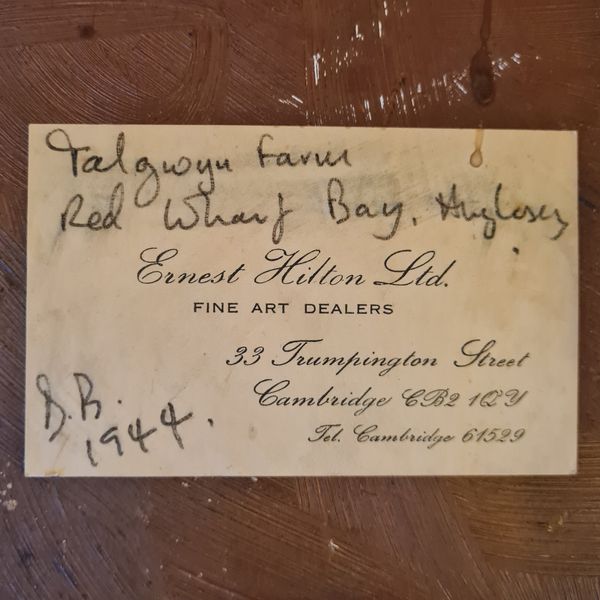 Talgwyn Farm
Red Wharf Bay, Anglesey
Ernest Hilton Ltd.
FINE ART DEALERS
33 Trumpington Street
Cambridge CB2 1QY
Tel. Cambridge 61529
B.B.
1944.